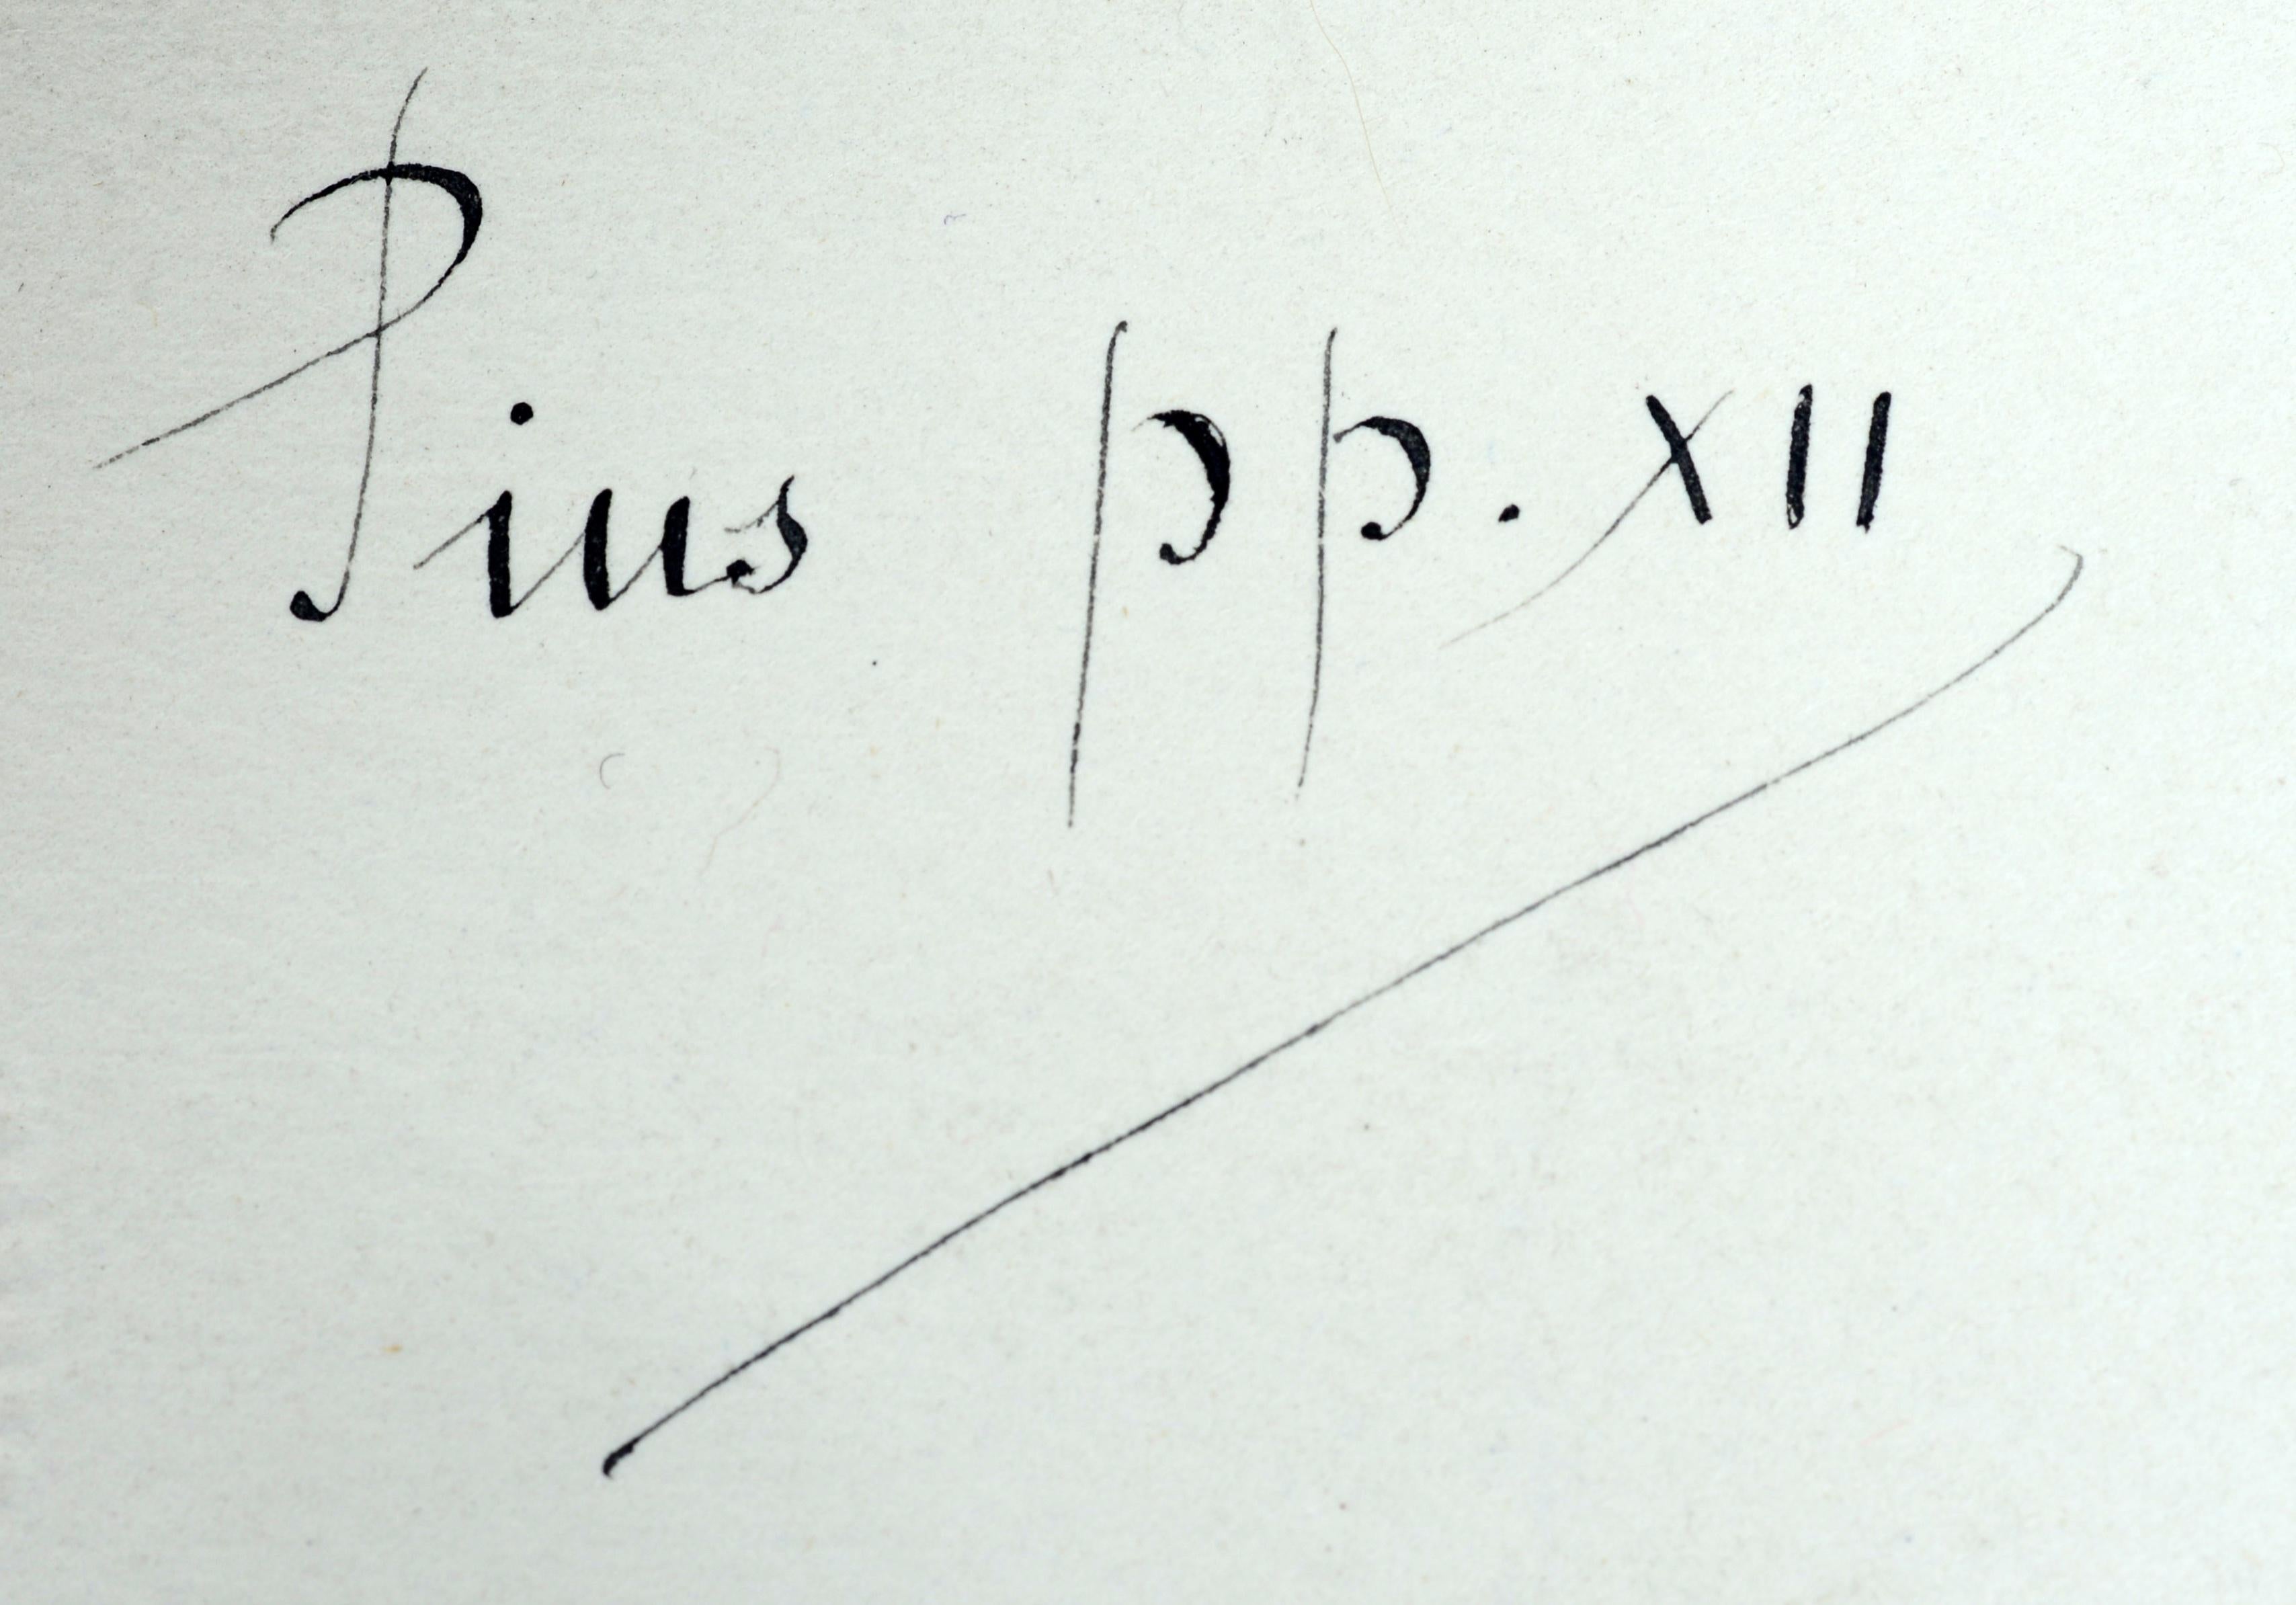 Pius pp. XII